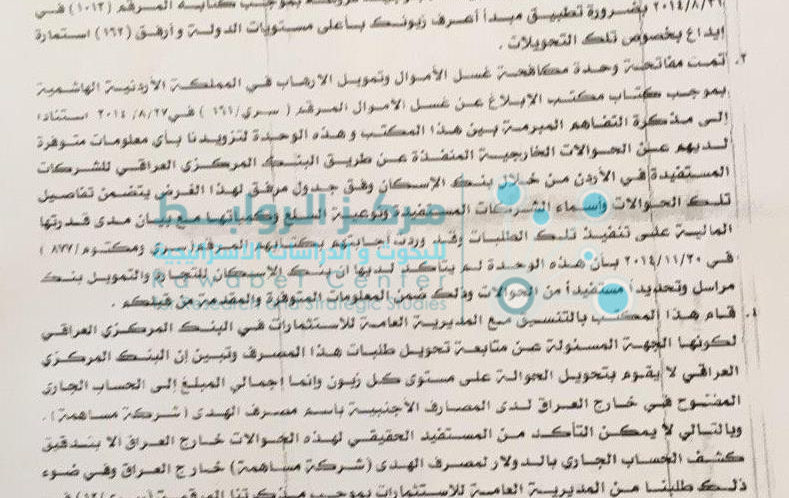 ٢٠١٤/٨/٢٦ بضرورة تطبيق مبدأ أعرف زبونك بأعلى مستويات الدولة و أرفق (١٦٢) استمارة
إيداع بخصوص تلك التحويلات .
٢. تمت مفاتحة وحدة مكافحة غسل الأموال وتمويل الارهاب في المملكة الأردنية الهاشمية
بموجب كتاب مكتب الابلاغ عن غسل الاموال المرقم ( سري/١٦١ ) في ٢٠١٤/٨/٢٧ استنادا
إلى مذكرة التفاهم المبرمة بين هذا المكتب و هذه الوحدة لتزويدنا بأي معلومات متوفرة
لديهم عن الحوالات الخارجية المنفذة عن طريق البنك المركزي العراقي للشركات
المستفيدة في الأردن من خلال بنك الإسكان وفق جدول مرفق لهذا الغرض يتضمن تفاصيل
تلك الحوالات وأسماء الشركات المستفيدة ونوعية السلع وكمياتها مع بيان مدى قدرتها
المالية على تنفيذ تلك الطلبات وقد وردت إجابتهم بكتابهم المرقم (سري ومكتوم/٨٧٧)
في ٢٠١٤/١١/٢٠ بأن هذه الوحدة لم يتأكد لديها ان بنك الإسكان للتجارة والتمويل بنك
مراسل وتحديداً مستفيداً من الحوالات وذلك ضمن المعلومات المتوفرة والمقدمة من قبلكم .
٤. قام هذا المكتب بالتنسيق مع المديرية العامة للاستثمارات في البنك المركزي العراقي
لكونها الجهة المسئولة عن متابعة تحويل طلبات هذا المصرف وتبين إن البنك المركزي
العراقي لا يقوم بتحويل الحوالة على مستوى كل زبون وإنما إجمالي المبلغ إلى الحساب الجاري
المفتوح في خارج العراق لدى المصارف الأجنبية باسم مصرف الهدى (شركة مساهمة) .
وبالتالي لا يمكن التأكد من المستفيد الحقيقي لهذه الحوالات خارج العراق الا بتدقيق
كشف الحساب الجاري بالدولار لمصرف الهدى (شركة مساهمة) خارج العراق وفي ضوء
ذلك طلبنا من المديرية العامة للاستثمارات بموجب مذكرتنا المرقمة
مركز الروابط
للبحوث و الدراسات الاستراتيجية
Rawabet Center
for Research and Strategic Studies